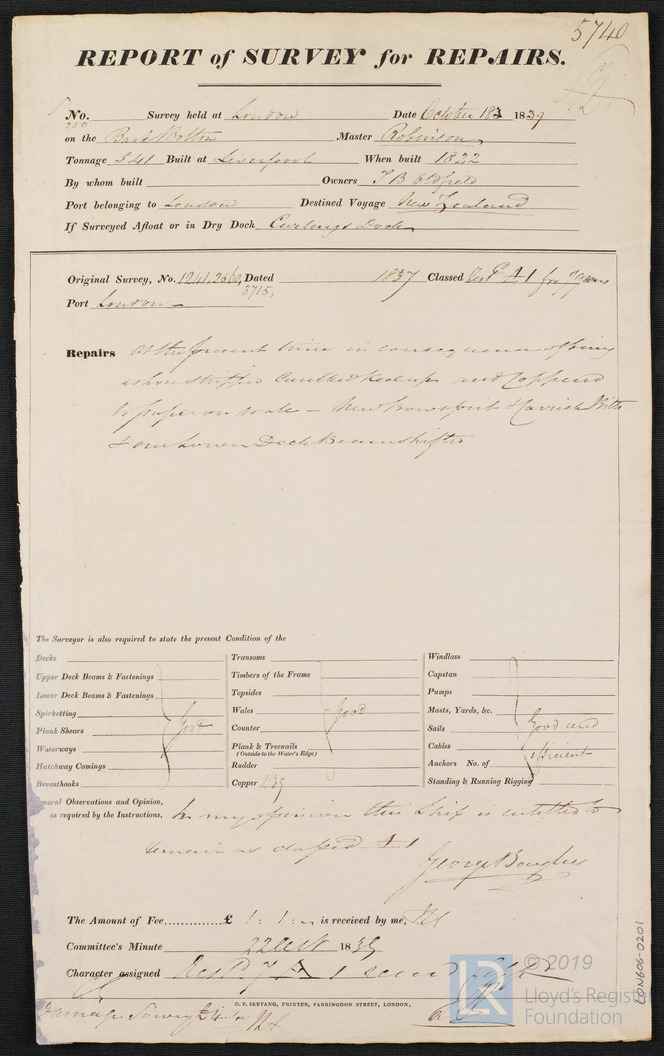 5740
REPORT of SURVEY for REPAIRS.
No. 250 Survey held at London Date October 18 1839
on the Bark Bolton Master Robinson
Tonnage 541 Built at Liverpool When built 1822
By whom built Owners T B Oldfield
Port belonging to London Destined Voyage New Zealand
If Surveyed Afloat or in Dry Dock Curlings Dock
Original Survey, No. 1241, 2560, 3715, Dated 1837 Classed A1 for 7 Years
Port London
Repairs At the present time in consequence of being
ashore stripped Caulked Red up and Coppered
to paper on wale - New bowsprit & Carrick Bitts
& one Lower Deck Beam shifted
The Surveyor is also required to state the present Condition of the
Decks
Upper Deck Beams & Fastenings
Lower Deck Beams & Fastenings
Spirketting
Plank Shears
Waterways
Hatchway Comings
Breasthooks
Good
Transoms
Timbers of the Frame
Topsides
Wales
Counter
Plank & Treenails
(Outside to the Water's Edge)
Rudder
Copper 1839
Good
Windlass
Capstan
Pumps
Masts, Yards, &c.
Sails
Cables
Anchors No. of
Standing & Running Rigging
Good and
efficient
General Observations and Opinion,
as required by the Instructions, In my opinion this Ship is entitled to
remain as classed A1
George Bayley
The Amount of Fee £ 1 : 1 : - is received by me,
Committee's Minute 22 Oct 1839
Character assigned
C. F. SEYFANG, PRINTER, FARRINGDON STREET, LONDON.
LON606-0201
LR
© 2019
Lloyd's Register
Foundation